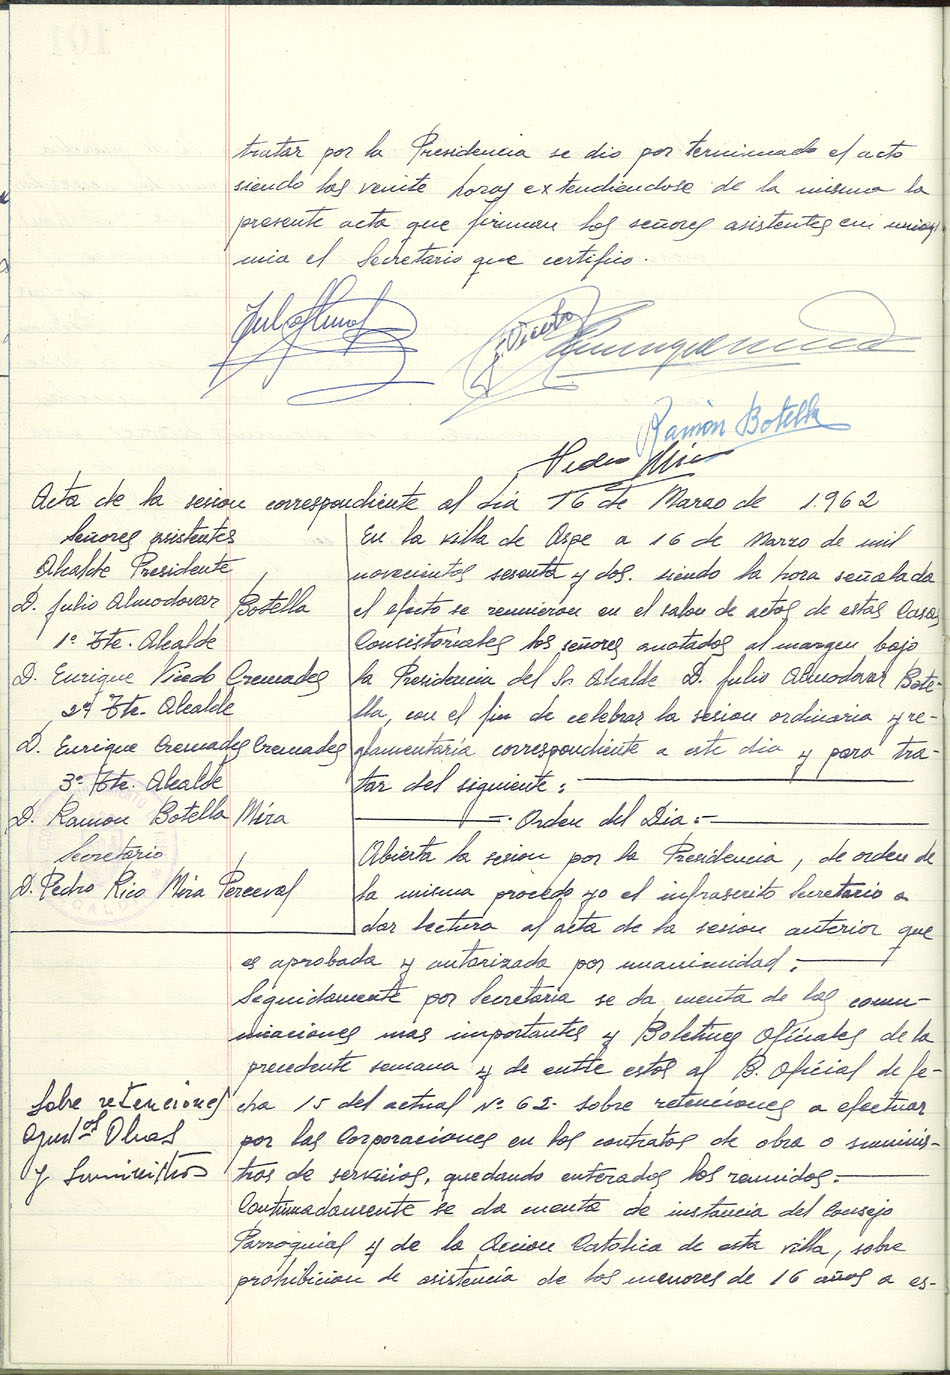 tratar por la Presidencia se dio por terminado el acto
siendo las veinte horas extendiendose de la misma la
presente acta que firman los señores asistentes en
mia el Secretario que certifico.
Vicedo
Ramón Botella
Pedro
Acta de la sesion correspondiente al dia 16 de Marzo de 1.962
Señores asistentes
Alcalde Presidente
D. Julio Almodovar Botella
1º Tte. Alcalde
D. Enrique Vicedo Cremades
2º Tte. Alcalde
D. Enrique Cremades Cremades
3º Tte. Alcalde
D. Ramon Botella Mira
Secretario
D. Pedro Rico Mira Perceval
En la villa de Aspe a 16 de Marzo de mil
novecientos sesenta y dos. siendo la hora señalada
el efecto se reunieron en el salon de actos de estas Casas
Consistoriales los señores anotados al margen bajo
la Presidencia del Sr Alcalde D. Julio Almodovar Bote-
lla, con el fin de celebrar la sesion ordinaria y re-
glamentaria correspondiente a este dia y para tra-
tar del siguiente:
Orden del Dia:-
Abierta la sesion por la Presidencia, de orden de
la misma procedo yo el infrascrito Secretario a
dar lectura al acta de la sesion anterior que
es aprobada y autorizada por unanimidad.-
Seguidamente por Secretaria se da cuenta de las comu-
nicaciones mas importantes y Boletines Oficiales de la
precedente semana y de entre estos al B. Oficial de fe-
cha 15 del actual Nº 62 sobre retenciones a efectuar
por las Corporaciones en los contratos de obra o suminis-
tros de servicios, quedando enterados los reunidos.-
Continuadamente se da cuenta de instancia del Consejo
Parroquial y de la Accion Catolica de esta villa, sobre
prohibicion de asistencia de los menores de 16 años a es-
Sobre retenciones
Obras
y Suministros